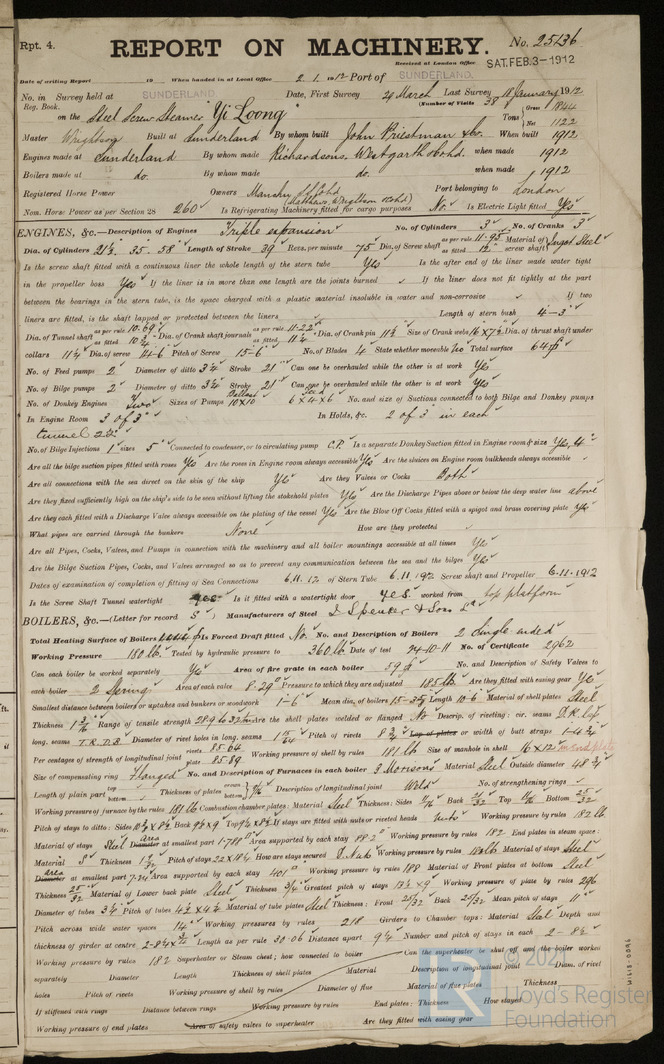 Rpt. 4.
REPORT ON MACHINERY.
No. 25136
Received at London Office
SAT. FEB. 3-1912
Date of writing Report 19 When handed in at Local Office 2.1.1912 Port of SUNDERLAND.
No. in Survey held at SUNDERLAND Date, First Survey 29 March Last Survey 18 January 1912
Reg. Book. (Number of Visits 38)
on the Steel Screw Steamer "Yi Loong" Tons Gross 1844 Net 1122
Master Built at Sunderland By whom built John Priestman & Co. When built 1912
Engines made at Sunderland By whom made Richardsons, Westgarth & Co. Ltd. when made 1912
Boilers made at do. By whom made do. when made 1912
Registered Horse Power Owners Port belonging to London
Nom. Horse Power as per Section 28 260 Is Refrigerating Machinery fitted for cargo purposes No. Is Electric Light fitted Yes
ENGINES, &c.—Description of Engines Triple expansion No. of Cylinders 3 No. of Cranks 3
Dia. of Cylinders 21½. 35. 58 Length of Stroke 39 Revs. per minute 75 Dia. of Screw shaft as per rule 11.95 as fitted 12 Material of screw shaft Ingot Steel
Is the screw shaft fitted with a continuous liner the whole length of the stern tube Yes Is the after end of the liner made water tight
in the propeller boss Yes If the liner is in more than one length are the joints burned If the liner does not fit tightly at the part
between the bearings in the stern tube, is the space charged with a plastic material insoluble in water and non-corrosive If two
liners are fitted, is the shaft lapped or protected between the liners Length of stern bush 4-3
Dia. of Tunnel shaft as per rule 10.69 as fitted 10¾ Dia. of Crank shaft journals as per rule 11.22 as fitted 11¼ Dia. of Crank pin 11½ Size of Crank webs 16x7½ Dia. of thrust shaft under
collars 11¼ Dia. of screw 14-6 Pitch of Screw 15-6 No. of Blades 4 State whether moveable No Total surface 64
No. of Feed pumps 2 Diameter of ditto 3¼ Stroke 21 Can one be overhauled while the other is at work Yes
No. of Bilge pumps 2 Diameter of ditto 3¼ Stroke 21 Can one be overhauled while the other is at work Yes
No. of Donkey Engines Two Sizes of Pumps Ballast 10x10 Feed 6x4x6 No. and size of Suctions connected to both Bilge and Donkey pumps
In Engine Room 3 of 3 In Holds, &c. 2 of 3 in each
tunnel 2½
No. of Bilge Injections 1 sizes 5 Connected to condenser, or to circulating pump C.P. Is a separate Donkey Suction fitted in Engine room & size Yes, 4
Are all the bilge suction pipes fitted with roses Yes Are the roses in Engine room always accessible Yes Are the sluices on Engine room bulkheads always accessible
Are all connections with the sea direct on the skin of the ship Yes Are they Valves or Cocks Both
Are they fixed sufficiently high on the ship's side to be seen without lifting the stokehold plates Yes Are the Discharge Pipes above or below the deep water line above
Are they each fitted with a Discharge Valve always accessible on the plating of the vessel Yes Are the Blow Off Cocks fitted with a spigot and brass covering plate Yes
What pipes are carried through the bunkers None How are they protected
Are all Pipes, Cocks, Valves, and Pumps in connection with the machinery and all boiler mountings accessible at all times Yes
Are the Bilge Suction Pipes, Cocks, and Valves arranged so as to prevent any communication between the sea and the bilges Yes
Dates of examination of completion of fitting of Sea Connections 6.11.12 of Stern Tube 6.11.1912 Screw shaft and Propeller 6.11.1912
Is the Screw Shaft Tunnel watertight Yes Is it fitted with a watertight door yes worked from top platform
BOILERS, &c.—(Letter for record S) Manufacturers of Steel J. Spencer & Sons Ld.
Total Heating Surface of Boilers Is Forced Draft fitted No. No. and Description of Boilers 2 Single ended
Working Pressure 180 lb. Tested by hydraulic pressure to 360 lb. Date of test 24-10-11 No. of Certificate 2962
Can each boiler be worked separately Yes Area of fire grate in each boiler 59 No. and Description of Safety Valves to
each boiler 2 Spring Area of each valve 8.29 Pressure to which they are adjusted 185 lb. Are they fitted with easing gear Yes
Smallest distance between boilers or uptakes and bunkers or woodwork 1-6 Mean dia. of boilers Length 10-6 Material of shell plates Steel
Thickness 1 3/16 Range of tensile strength 28.9 to 32 tons Are the shell plates welded or flanged No Descrip. of riveting: cir. seams D.R. Lap
long. seams T.R.D.B Diameter of rivet holes in long. seams 1 15/64 Pitch of rivets 8¾ Lap of plates or width of butt straps 1-6¾
Per centages of strength of longitudinal joint rivets 85.64 plate 85.89 Working pressure of shell by rules 181 lb Size of manhole in shell 16x12 in end plate
Size of compensating ring flanged No. and Description of Furnaces in each boiler 3 Morisons Material Steel Outside diameter 48¾
Length of plain part top bottom Thickness of plates crown bottom 9/16 Description of longitudinal joint Weld No. of strengthening rings
Working pressure of furnace by the rules 181 lb Combustion chamber plates: Material Steel Thickness: Sides Back 21/32 Top 11/16 Bottom 25/32
Pitch of stays to ditto: Sides Back 9½x9 Top If stays are fitted with nuts or riveted heads nuts Working pressure by rules 182 lb.
Material of stays Steel Area Diameter at smallest part 1.788 Area supported by each stay 88.2 Working pressure by rules 182 End plates in steam space:
Material S Thickness 1 3/32 Pitch of stays 22x18¼ How are stays secured D. Nuts Working pressure by rules 183 lb Material of stays Steel
Area Diameter at smallest part 7.24 Area supported by each stay 401 Working pressure by rules 188 Material of Front plates at bottom Steel
Thickness 25/32 Material of Lower back plate Steel Thickness ¾ Greatest pitch of stays 13½x9 Working pressure of plate by rules 296
Diameter of tubes 3¼ Pitch of tubes 4½x4½ Material of tube plates Steel Thickness: Front 25/32 Back 25/32 Mean pitch of stays 11
Pitch across wide water spaces 14 Working pressures by rules 218 Girders to Chamber tops: Material Steel Depth and
thickness of girder at centre Length as per rule 30.06 Distance apart 9¼ Number and pitch of stays in each 2-8½
Working pressure by rules 182 Superheater or Steam chest; how connected to boiler Can the superheater be shut off and the boiler worked
separately Diameter Length Thickness of shell plates Material Description of longitudinal joint Diam. of rivet
holes Pitch of rivets Working pressure of shell by rules Diameter of flue Material of flue plates Thickness
If stiffened with rings Distance between rings Working pressure by rules End plates: Thickness How stayed
Working pressure of end plates Area of safety valves to superheater Are they fitted with easing gear
W1118-0096
© 2021
Lloyd's Register
Foundation